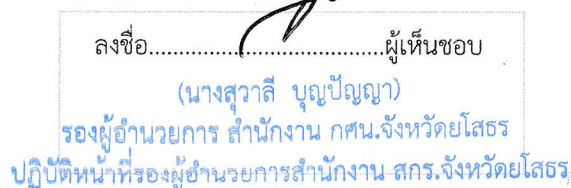 ลงชื่อ....................................ผู้เห็นชอบ
(นางสุวาลี บุญปัญญา)
รองผู้อำนวยการ สำนักงาน กศน.จังหวัดยโสธร
ปฏิบัติหน้าที่รองผู้อำนวยการสำนักงาน สกร.จังหวัดยโสธร